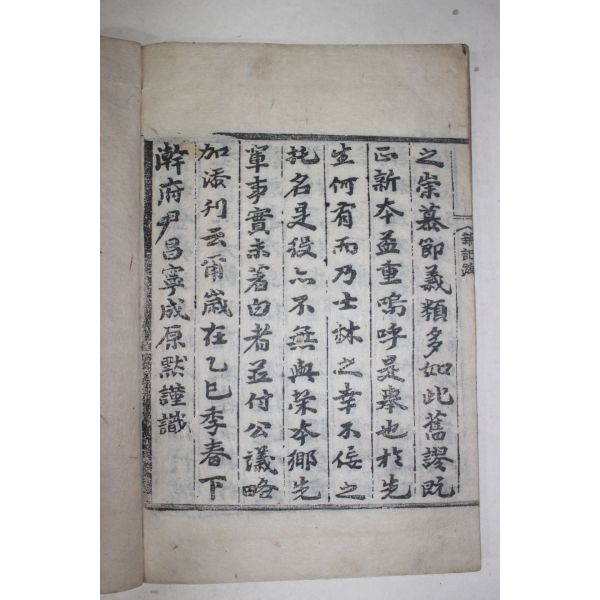 之崇慕節義類多如此舊謬既
正新本益重嗚呼是擧也於先
生何有而乃士林之幸不佞之
託名是役亦不無與榮本鄕先
輩事實未著白者並付公議略
加添刊云爾歲在乙巳季春下
澣府尹昌寧成原默謹識